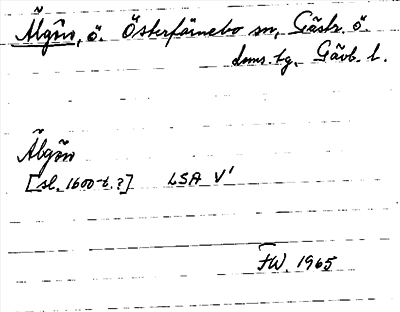 Älgön, ö. Österfärnebo sn, Gästr. ö.
doms.tg, Gävb. l.
Älgön
[sl. 1600-t.?] LSA V¹
FW. 1965